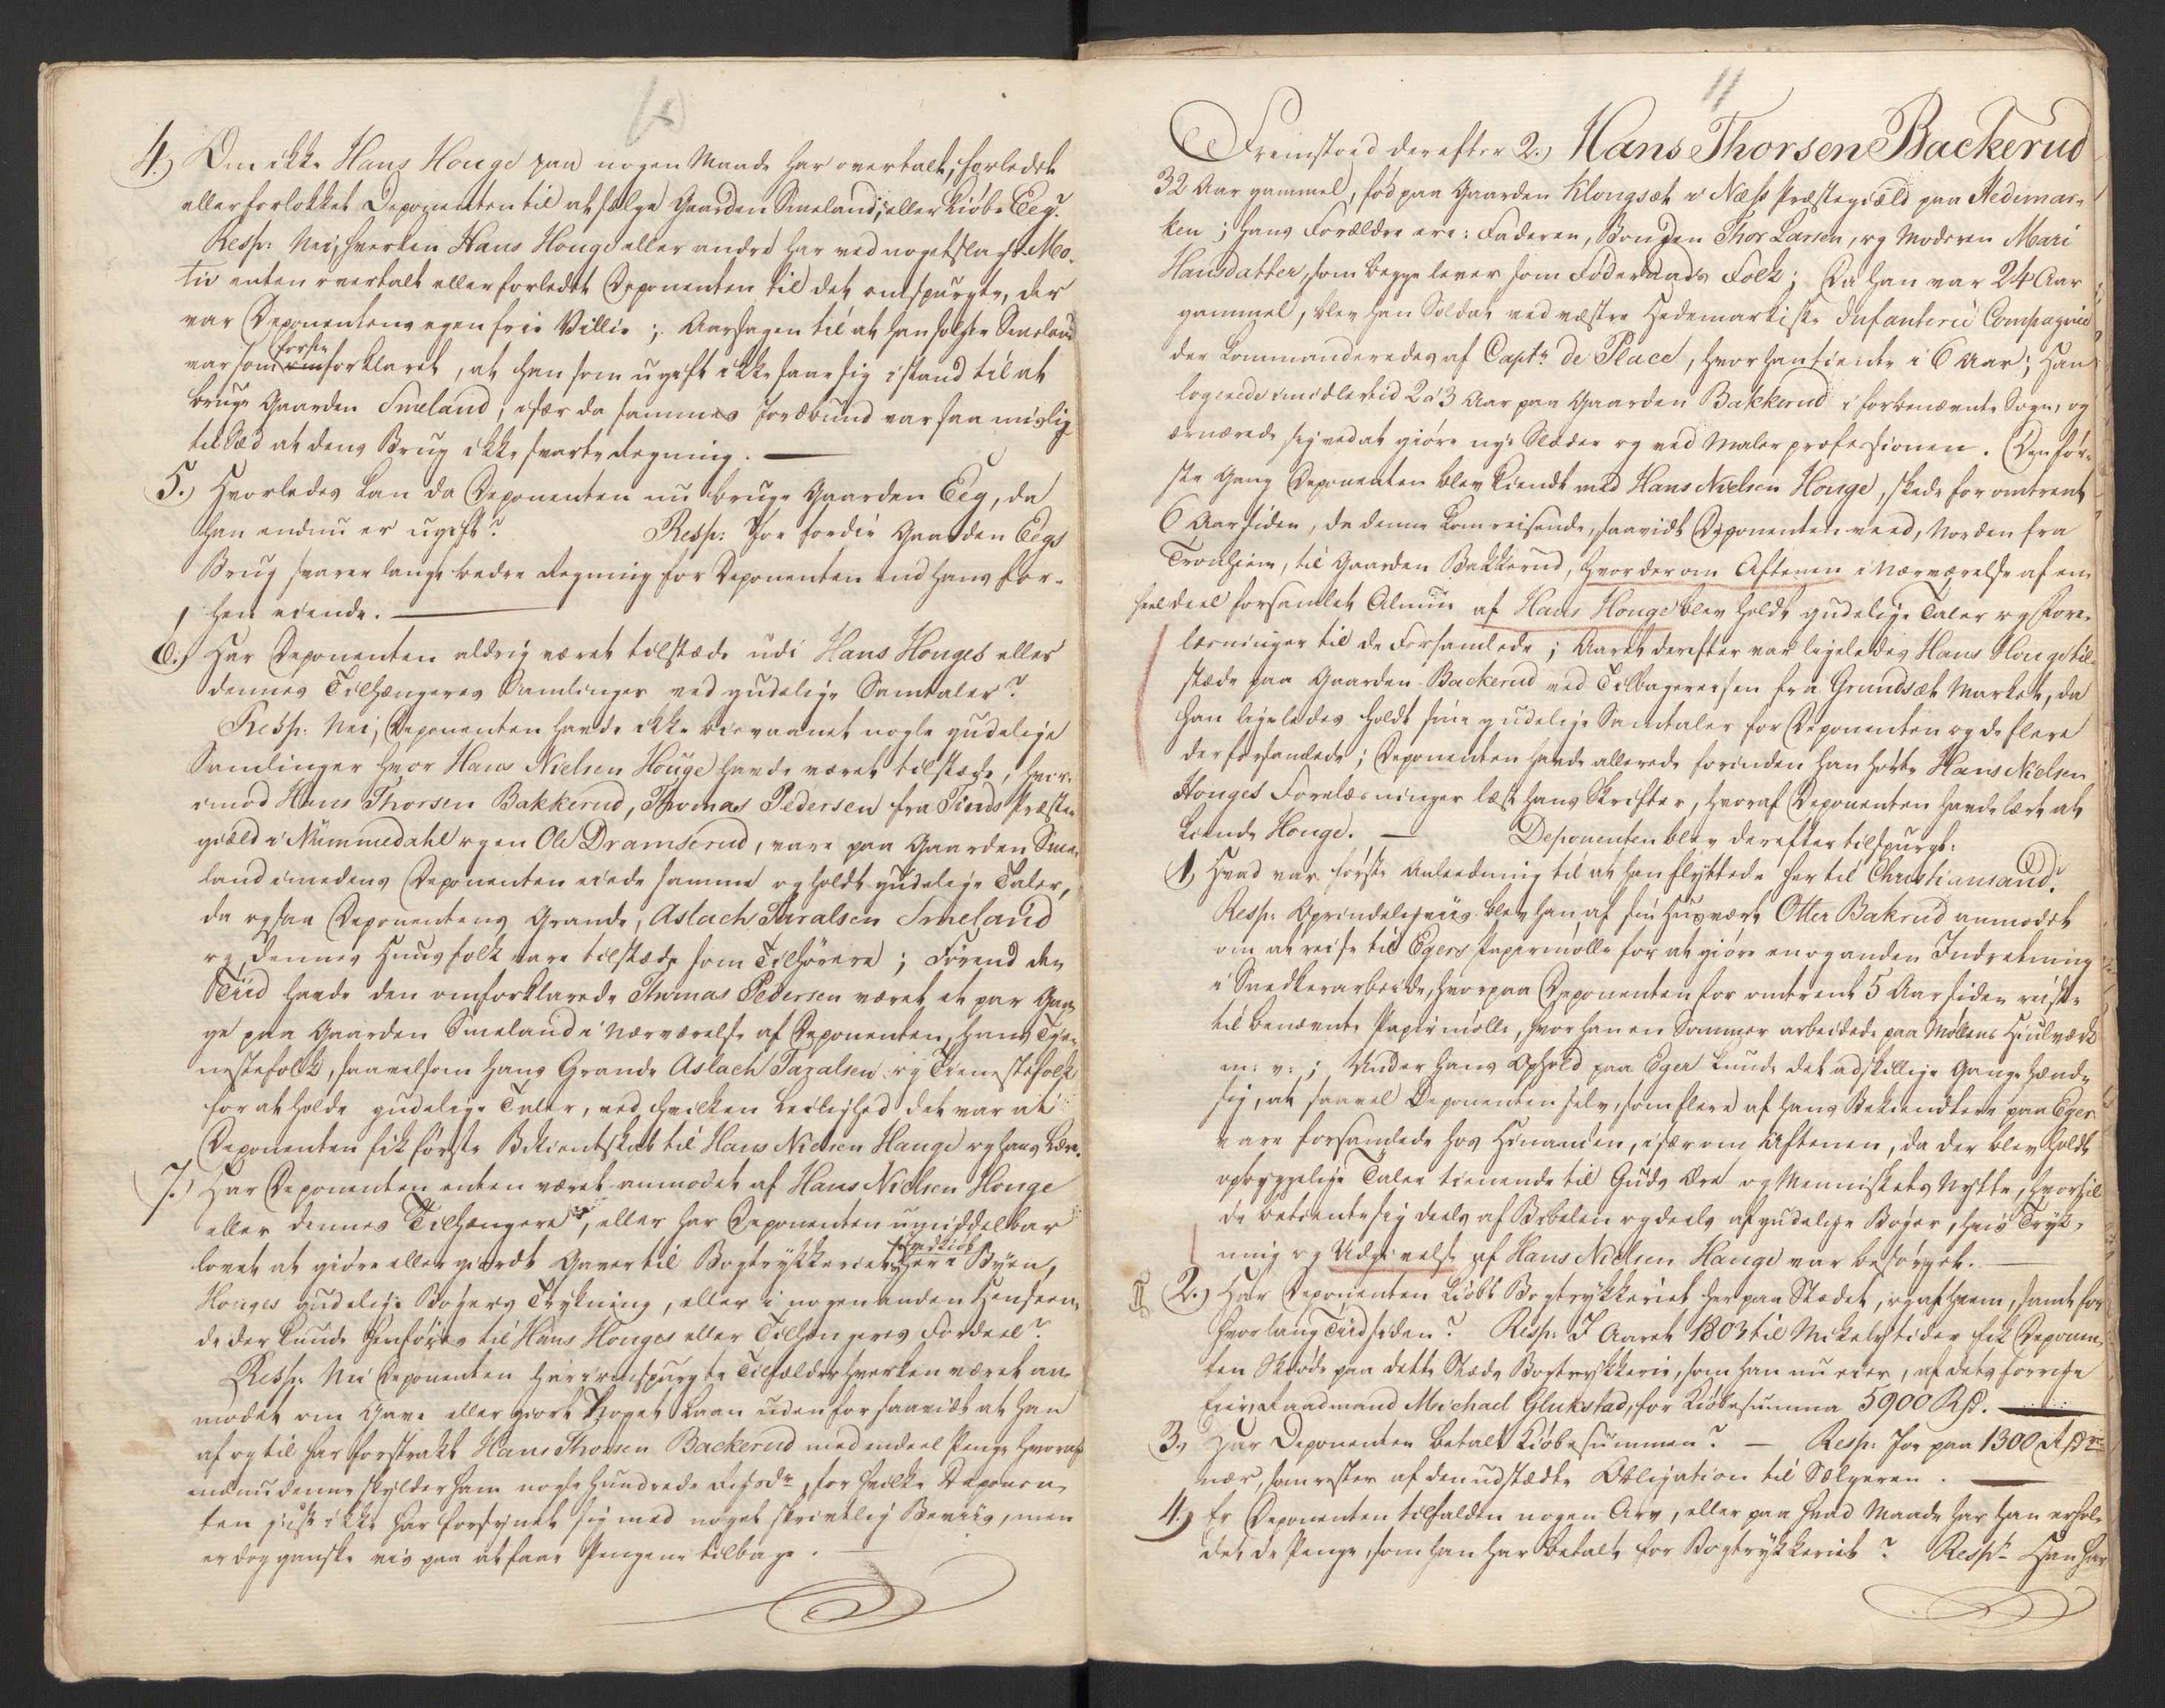 4.) Om ikke Hans Houge paa nogen Maade har overtalt, forledet
eller forlokket Deponenten til at sælge Gaarden Smeland, eller kiøbe Eeg?
Resp: Nei, hverken Hans Houge eller andre har ved nogetslags Mo-
tiv enten overtalt eller forledet Deponenten til det omspurgte, der
var Deponentens egen frie Villie; Aarsagen til at han solgte Smeland
var som før forklaret, at han som ugift ikke saae sig i stand til at
bruge Gaarden Smeland; især da sammes Jordbund var saa mislig
til Sæd at dens Brug ikke svarte Regning. —
5.) Hvorledes kan da Deponenten nu bruge Gaarden Eeg, da
han endnu er ugift? Resp: Jo fordie Gaarden Eegs
Brug svarer langt bedre Regning for Deponenten end hans for-
hen eiende. —
6.) Har Deponenten aldrig været tilstæde udi Hans Houges eller
dennes Tilhængeres Samlinger ved gudelige Samtaler?
Resp: Nei, Deponenten havde ikke bievaanet nogle gudelige
Samlinger hvor Hans Nielsen Houge havde været tilstæde, hvor-
imod Hans Thorsen Bakkerud, Thomas Pedersen fra Tinds Præste-
giæld i Nummedahl og en Ole Dramserud, vare paa Gaarden Sme-
land imedens Deponenten eiede samme og holdt gudelige Taler,
da ogsaa Deponentens Grande, Aslach Taralsen Smeland
og dennes Huusfolk vare tilstæde som Tilhørere; Førend den
Tiid havde den omforklarede Thomas Pedersen været et par Gan-
ge paa Gaarden Smeland i Nærværelse af Deponenten, hans Tie-
nestefolk, saavelsom hans Grande Aslach Tazalsen og Tienestefolk
for at holde gudelige Taler, ved hvilken Leilighed det var at
Deponenten fik første Bekientskab til Hans Nielsen Hauge og hans Lære.
7.) Har Deponenten enten været anmodet af Hans Nielsen Houge
eller dennes Tilhængere, eller har Deponenten umiddelbar
lovet at giøre eller giordt Gaver til Bogtrykkeriets Indkiøb her i Byen,
Houges gudelige Bøgers Trykning, eller i nogen anden Henseen-
de der kunde henføres til Hans Houges eller Tilhængeres Fordeel?
Resp: Nei Deponenten har i omspurgte Tilfælde hverken været an-
modet om Gave eller giort noget Laan uden forsaavidt at han
af og til har forstrakt Hans Thorsen Backerud med endeel Penge hvoraf
endnu denne skylder ham nogle hundrede Rigsdr, for hvilke Deponen-
ten just ikke har forsynet sig med noget skrivtlig Beviis, men
er dog ganske vis paa at faae Pengene tilbage.
11
Fremstoed derefter 2.) Hans Thorsen Backerud
32 Aar gammel, fød paa Gaarden Klongsæt i Næss Præstegiæld paa Hedemar-
ken; hans Forældre ere: Faderen, Bonden Thor Larsen, og Moderen Mari
Hansdatter, som begge lever som Føderaads Folk; Da han var 24 Aar
gammel, blev han Soldat ved vestre Hedemarkiske Infanterie Compagnie
der Commanderedes af Captn de Place, hvor han tiente i 6 Aar; Han
logerede imidlertid 2 à 3 Aar paa Gaarden Bakkerud i forbenævnte Sogn, og
ernærede sig ved at giøre nye Slæder og ved Maler professionen. Den før-
ste Gang Deponenten blev kiendt med Hans Nielsen Houge, skede for omtrent
6 Aar siden, da denne kom reisende, saavidt Deponenten veed, Norden fra
Tronhiem, til Gaarden Bakkerud, hvor der om Aftenen i Nærværelse af en
heel deel forsamlet Almue af Hans Houge blev holdt gudelige Taler og Fore-
læsninger til de Forsamlede; Aaret derefter var ligeledes Hans Houge til-
stæde paa Gaarden Backerud ved Tilbagereisen fra Grundsæt Market, da
han ligeledes holdt sine gudelige Samtaler for Deponenten og de flere
der forsamlede; Deponenten havde allerede forinden han hørte Hans Nielsen
Houges Forelæsninger læst hans Skrifter, hvoraf Deponenten havde lært at
kiende Houge. — Deponenten blev derefter tilspurgt:
1, Hvad var første Anleedning til at han flyttede her til Christiansand?
Resp: Oprindeligviis blev han af sin Huusvært Otter Bakrud anmodet
om at reise til Egers Papirmølle for at giøre en og anden Indretning
i Snedkerarbeide, hvorpaa Deponenten for omtrent 5 Aar siden reiste
til benævnte Papirmølle, hvor han en Sommer arbeidede paa Møllens Hiulværk
m: v:; Under hans Ophold paa Eger kunde det adskillige Gange hænde
sig, at saavel Deponenten selv, som flere af hans Bekiendtere paa Eger
vare forsamlede hos Hinanden, især om Aftenen, da der blev holdt
opbyggelige Taler tienende til Guds Ære og Menniskets Nytte, hvortil
de betiente sig deels af Bibelen og deels af gudelige Bøger, hvis Tryk-
ning og Udgivelse af Hans Nielsen Hauge var besørget. —
2.) Har Deponenten kiøbt Bogtrykkeriet her paa Stædet, og af hvem, samt for
hvorlang Tiid siden? Resp: I Aaret 1803 til Mikelstider fik Deponen-
ten Skiøde paa dette Stæds Bogtrykkerie, som han nu eier, af dets forrige
Eier, Raadmand Michael Glukstad, for Kiøbesumma 5900 Rd. —
3., Har Deponenten betalt Kiøbesummen? — Resp: Jo paa 1300 Rdr
nær, som rester af den udstædte Obligation til Sælgeren. —
4.) Er Deponenten tilfalden nogen Arv, eller paa hvad Maade har han erhol-
det de Penge, som han har betalt for Bogtrykkeriet? Resp: Han har